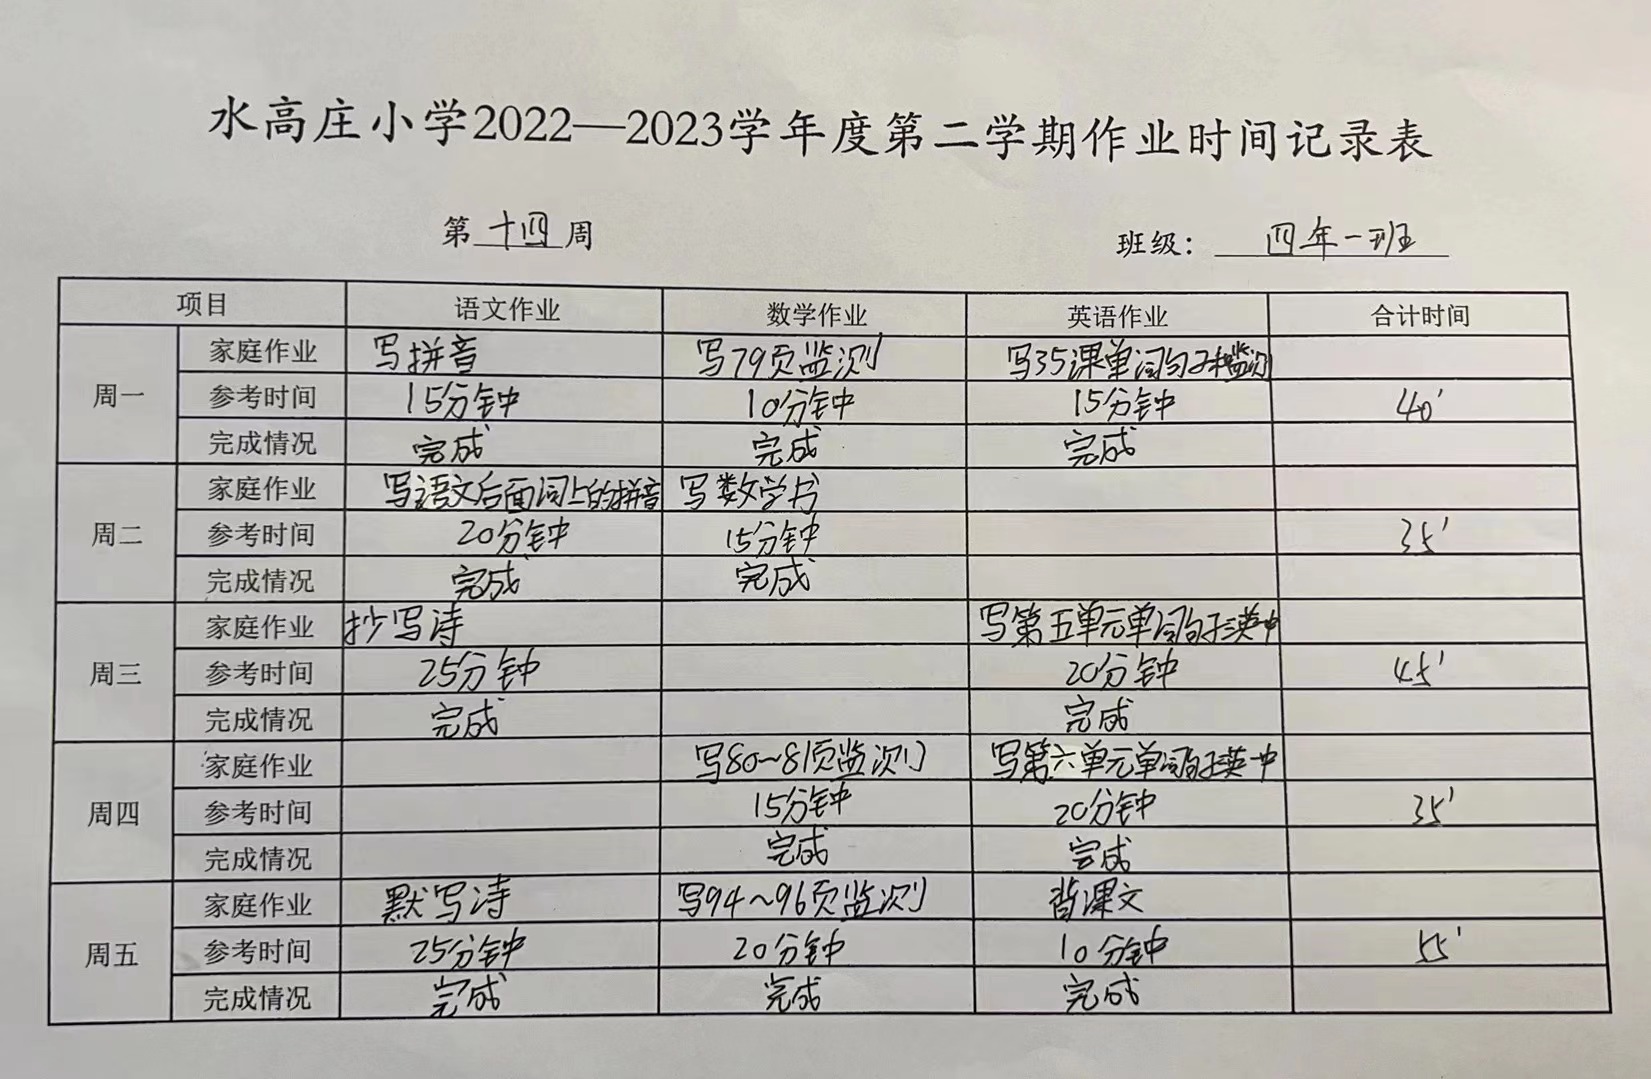 水高庄小学2022—2023学年度第二学期作业时间记录表
第十四周 班级：四年一班
项目 语文作业 数学作业 英语作业 合计时间
周一
家庭作业 写拼音 写79页监测 写35课单词句子和监测
参考时间 15分钟 10分钟 15分钟 40'
完成情况 完成 完成 完成
周二
家庭作业 写语文后面词上的拼音 写数学书
参考时间 20分钟 15分钟 35'
完成情况 完成 完成
周三
家庭作业 抄写诗 写第五单元单词句子三英一中
参考时间 25分钟 20分钟 45'
完成情况 完成 完成
周四
家庭作业 写80~81页监测 写第六单元单词句子三英一中
参考时间 15分钟 20分钟 35'
完成情况 完成 完成
周五
家庭作业 默写诗 写94~96页监测 背课文
参考时间 25分钟 20分钟 10分钟 55'
完成情况 完成 完成 完成